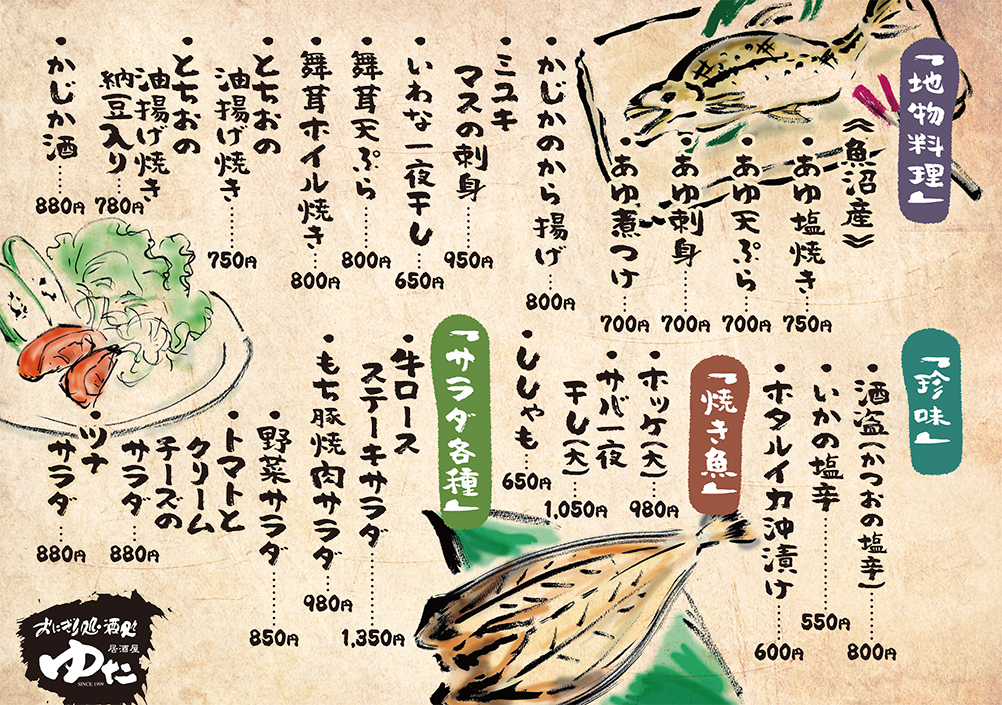 「地物料理」
《魚沼産》
・あゆ塩焼き……750円
・あゆ天ぷら……700円
・あゆ刺身……700円
・あゆ煮つけ……700円
・かじかのから揚げ……800円
・ミユキ
マスの刺身……950円
・いわな一夜干し……650円
・舞茸天ぷら……800円
・舞茸ホイル焼き……800円
・とちおの
油揚げ焼き……750円
・とちおの
油揚げ焼き
納豆入り……780円
・かじか酒……880円
「珍味」
・酒盗(かつおの塩辛)……800円
・いかの塩辛……550円
・ホタルイカ沖漬け……600円
「焼き魚」
・ホッケ(大)……980円
・サバ一夜
干し(大)……1,050円
・ししゃも……650円
「サラダ各種」
・牛ロース
ステーキサラダ……1,350円
・もち豚焼肉サラダ……980円
・野菜サラダ……850円
・トマトと
クリーム
チーズの
サラダ……880円
・ツナ
サラダ……880円
おにぎり処・酒処
居酒屋
ゆた
SINCE 1999